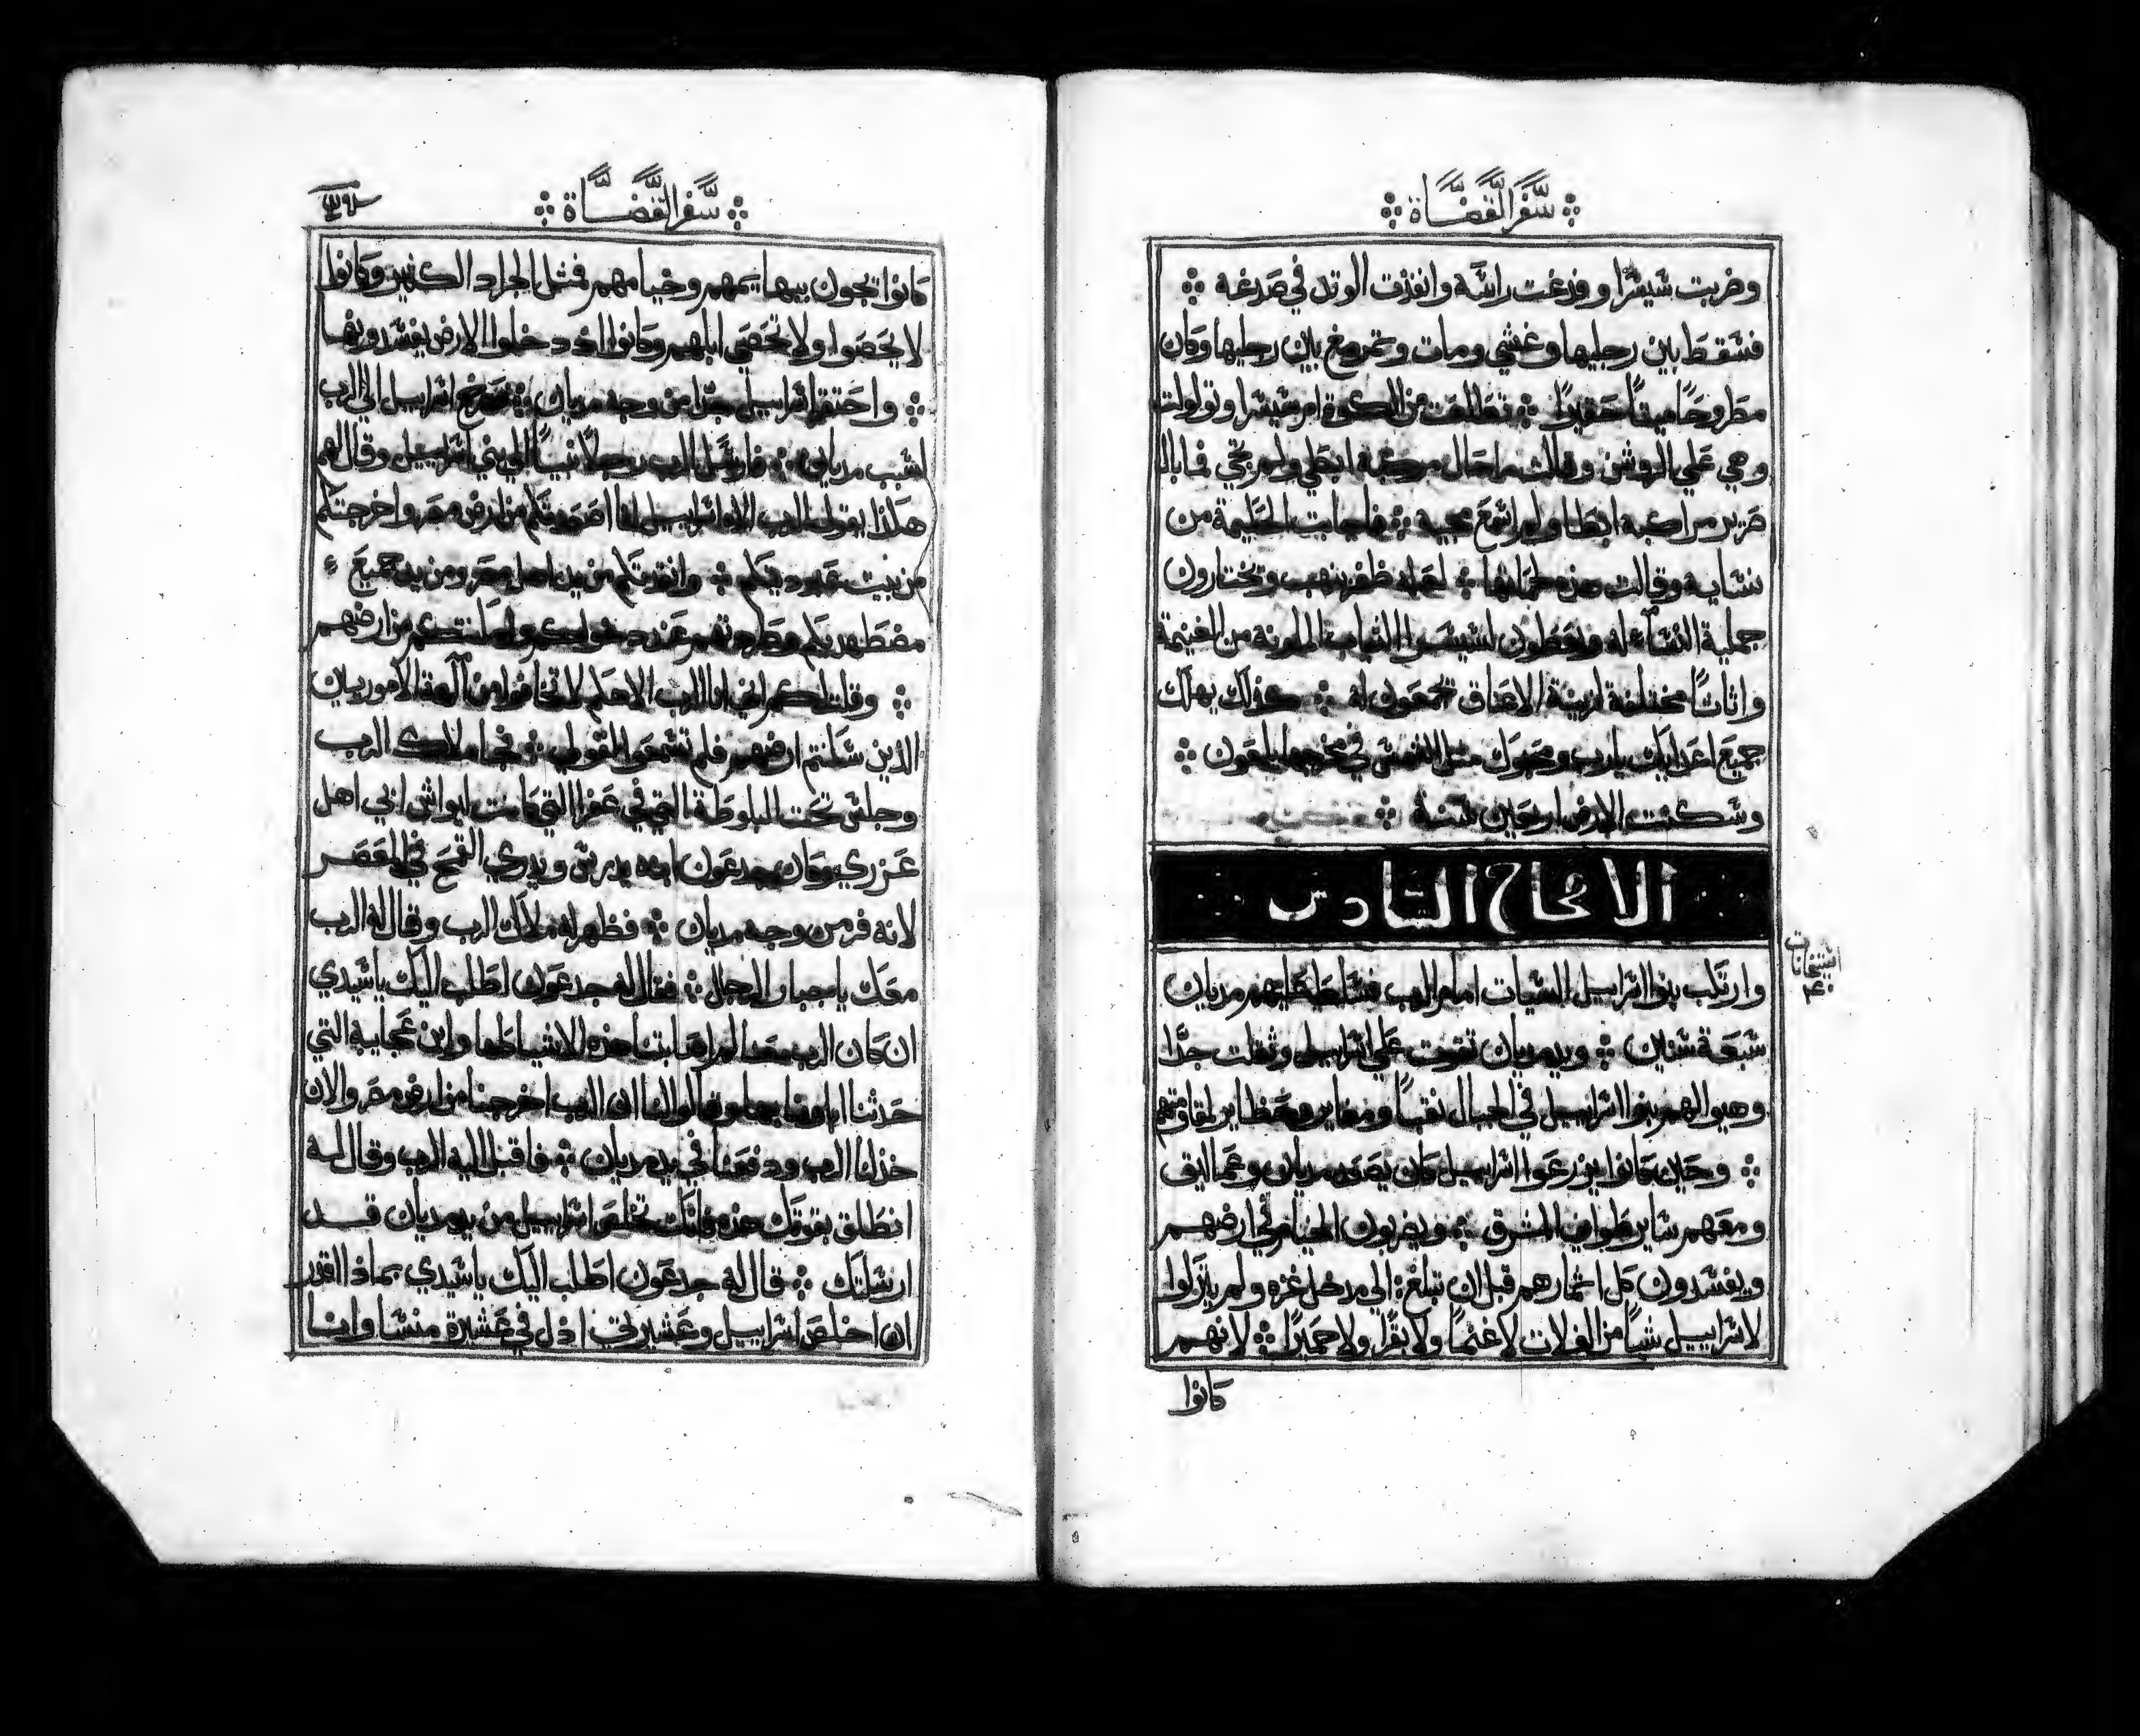 سفر القضاة
وضربت شيشرا وفدغت راسه وانفذت الوتد في صدغه
فسقط بين رجليها وغشي ومات وتمرمغ بين رجليها وكان
مطروحا ميتا حقيرا فتطلعت من الكوة ام شيشرا وتولولت
وهي علي الروشن وقالت ما حال مركبة ابطي ولم يجي فما بال
مراكبه ابطا ولم اسمع مجيه فاجابت الحليمة من
نسايه وقالت هذه لحماتها لعله ظفر بنهب وتختارون
جملية النساء له ويعطون لشيشرا الثياب الملونة من الغنيمة
واثاثا مختلفة لزينة الاعناق تجمعون له كذلك يهلك
جميع اعدايك يارب ومحبوك مثل الشمس في مخرجها يلمعون
وسكنت الارض اربعين سنة
الاصحاح السادس
وارتكب بنوا اسراييل السيات امام الرب فسلط عليهم مديان
سبعة سنين ويد مديان تقوت علي اسراييل وثقلت جدا
وهيوا لهم بنوا اسراييل في الجبال نقبا ومغاير ومحظاير لمقاومتهم
وحين كانوا يزرعوا اسراييل كان يصعد مديان وعماليق
ومعهم ساير طوايف المشرق ويضربون الخيام في ارضهم
ويفسدون كل اثمارهم قبل ان تبلغ الي مدخل غزه ولم يتركوا
لاسراييل شيا من الغلات لا غنما ولا بقرا ولا حميرا لانهم
كانوا
سفر القضاة
كانوا يجون ببهايمهم وخيامهم فمثل الجراد الكثير وكانوا
لا يحصوا ولا تحصي ابلهم وكانوا اذ دخلوا الارض يفسدونها
واحتقر اسراييل جدا من وجه مديان فصرخ اسراييل الي الرب
لسبب مديان فارسل الرب رجلا نبيا الي بني اسراييل وقال لهم
هكذا يقول الرب الاه اسراييل انا اصعدتكم من ارض مصر واخرجتكم
من بيت عبوديتكم وانقذتكم من يد اهل مصر ومن يد جميع
مضطهديكم وطردتهم عند دخولكم واعطيتكم من ارضهم
وقلت لكم اني انا الرب الاهكم لا تخافوا من آلهة الاموريان
الذين سكنتم ارضهم فلم تسمعوا لقولي فجا ملاك الرب
وجلس تحت البلوطة التي في عفرا التي كانت ليواش ابي اهل
عزري وكان جدعون ابنه يدرس ويدري القمح في المعصر
لانه فر من وجه مديان فظهر له ملاك الرب وقال له الرب
معك ياجبار الرجال فقال له جدعون اطلب اليك ياسيدي
ان كان الرب معنا لم اصابتنا هذه الاشيا كلها واين عجايبه التي
حدثنا اباونا بها وقالوا لنا ان الرب اخرجنا من ارض مصر والان
خذلنا الرب ودفعنا في يد مديان فاقبل اليه الرب وقال له
انطلق بقوتك هذه فانك تخلص اسراييل من يد مديان قد
ارسلتك قال له جدعون اطلب اليك ياسيدي بماذا اقدر
ان اخلص اسراييل وعشيرتي اذل في عشيرة منسا وانا